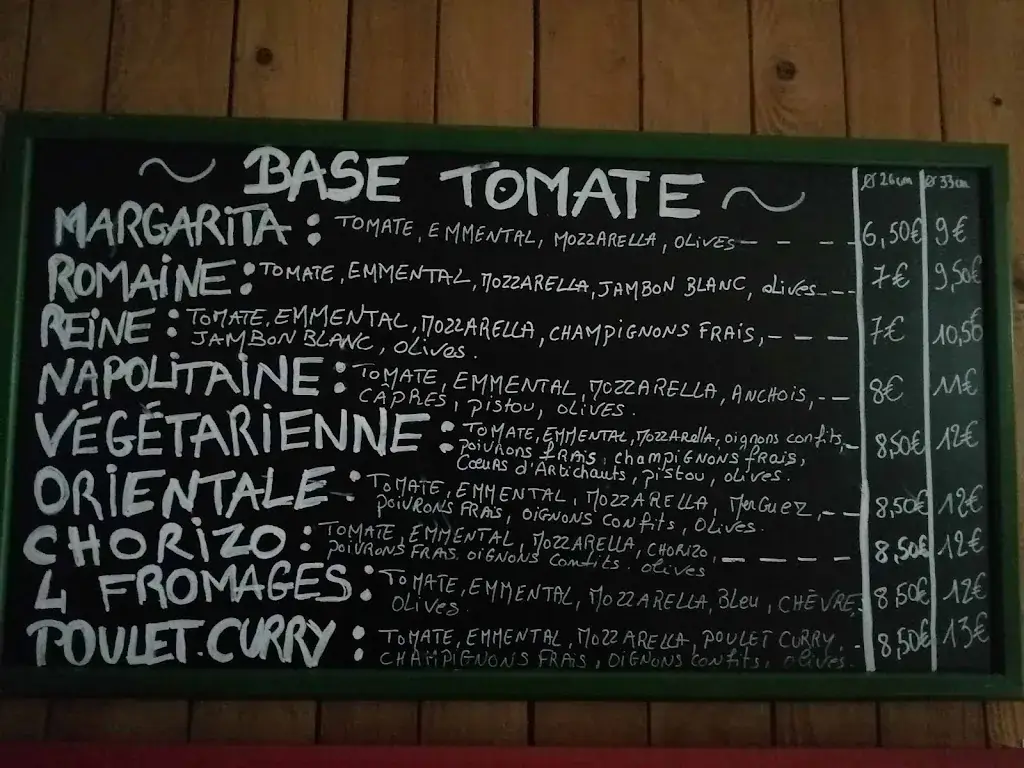 ~ BASE TOMATE ~ Ø 26cm Ø 33cm
MARGARITA : TOMATE, EMMENTAL, MOZZARELLA, OLIVES - - - - 6,50€ 9€
ROMAINE : TOMATE, EMMENTAL, MOZZARELLA, JAMBON BLANC, olives - - - 7€ 9,50€
REINE : TOMATE, EMMENTAL, MOZZARELLA, CHAMPIGNONS FRAIS, - - - - 7€ 10,50
JAMBON BLANC, OLIVES.
NAPOLITAINE : TOMATE, EMMENTAL, MOZZARELLA, ANCHOIS, - - - 8€ 11€
CÂPRES, pistou, OLIVES.
VÉGÉTARIENNE : TOMATE, EMMENTAL, MOZZARella, oignons confits, - 8,50€ 12€
poivrons FRAIS, champignons frais,
Coeurs d'Artichauts, pistou, olives.
ORIENTALE : TOMATE, EMMENTAL, MOZZARELLA, MerGuez, - - 8,50€ 12€
POIVRONS FRAIS, OIGNONS CONFITS, OLIVES.
CHORIZO : TOMATE, EMMENTAL, MOZZARELLA, CHORIZO, - - - - 8,50€ 12€
POIVRONS FRAIS. OIGNONS CONFITS. OLIVES
4 FROMAGES : TOMATE, EMMENTAL, MOZZARELLA, Bleu, CHÈVRE, 8,50€ 12€
OLIVES.
POULET.CURRY : TOMATE, EMMENTAL, MOZZARELLA, POULET CURRY, - 8,50€ 13€
CHAMPIGNONS FRAIS, OIGNONS CONFITS, olives.